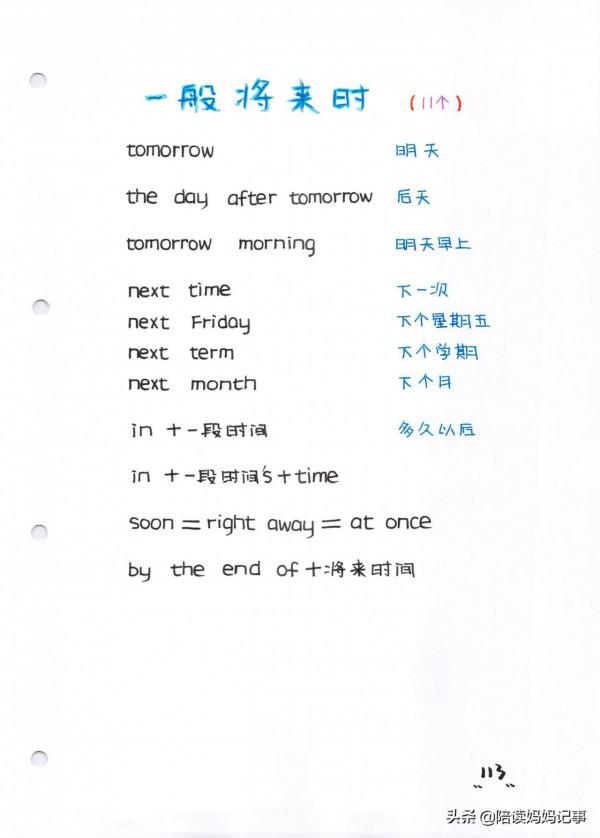 一般将来时 (11个)
tomorrow 明天
the day after tomorrow 后天
tomorrow morning 明天早上
next time 下一次
next Friday 下个星期五
next term 下个学期
next month 下个月
in + 一段时间 多久以后
in + 一段时间's + time
soon = right away = at once
by the end of + 将来时间
113
头条 @陪读妈妈记事